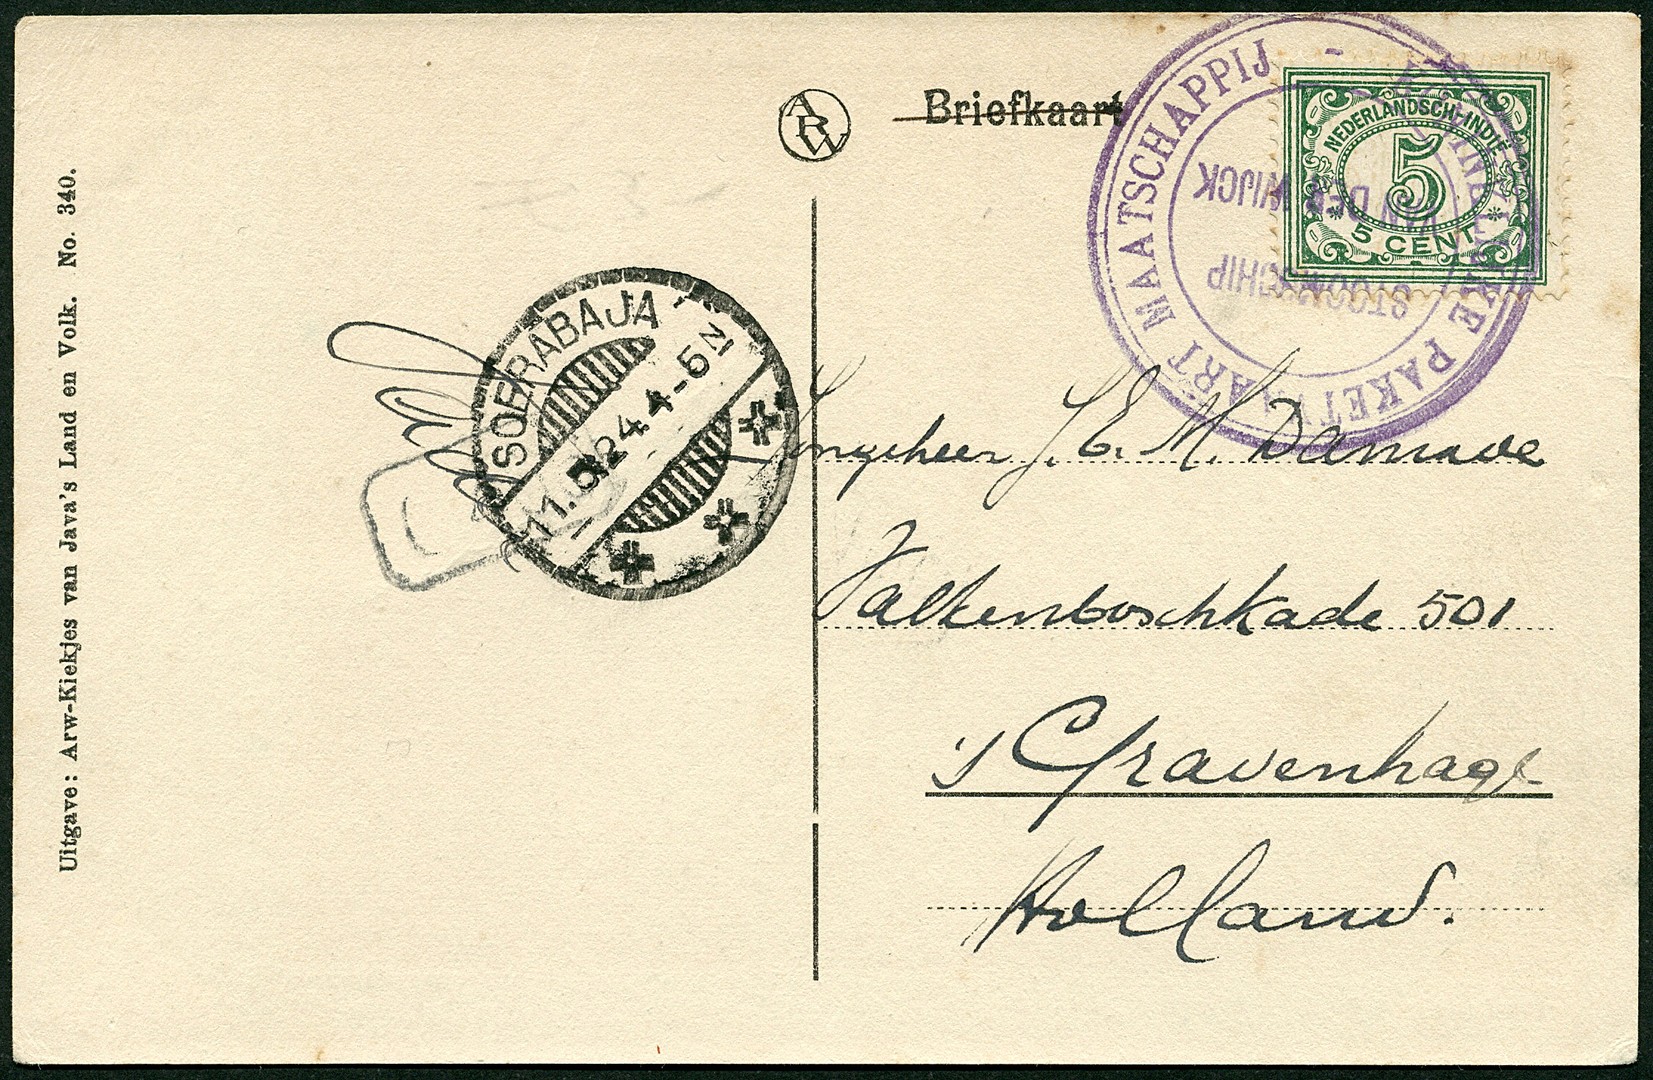 ARW
Briefkaart
NEDERLANDSCH-INDIË
5
5 CENT
PAKETVAART MAATSCHAPPIJ
STOOMSCHIP
VAN DER WIJCK
SOERABAJA
11.5.24.4-5N
J. E. M. Damave
Valkenboschkade 501
's Gravenhage
Holland.
Uitgave: Arw-Kiekjes van Java's Land en Volk. No. 340.